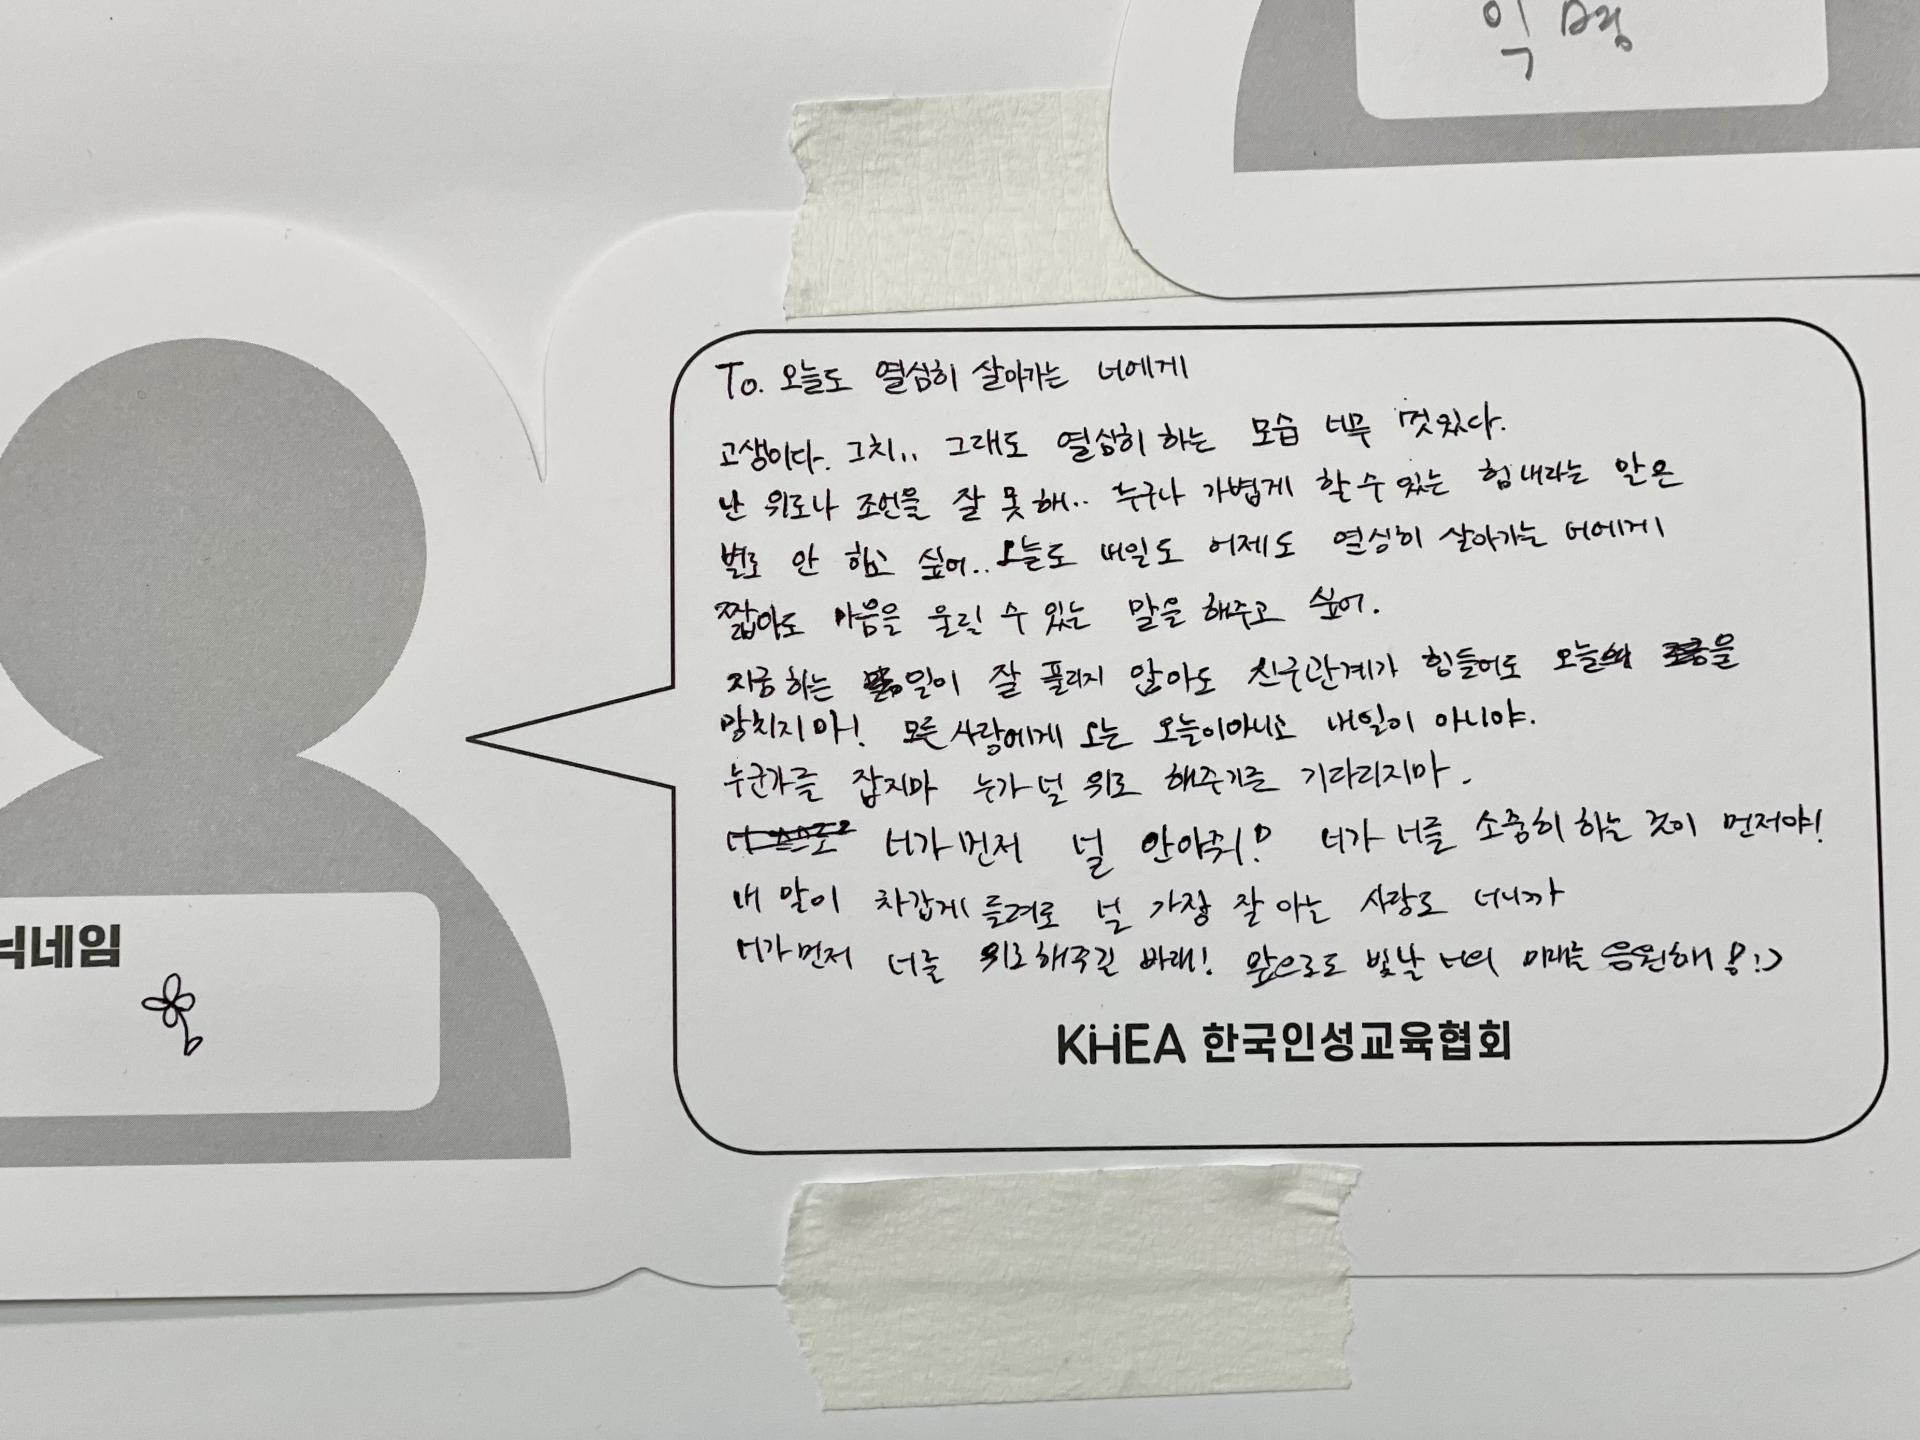 익명
To. 오늘도 열심히 살아가는 너에게
고생이다. 그치.. 그래도 열심히 하는 모습 너무 멋있다.
난 위로나 조언을 잘 못해.. 누구나 가볍게 할 수 있는 힘내라는 말은
별로 안 하고 싶어.. 오늘도 내일도 어제도 열심히 살아가는 너에게
짧아도 마음을 울릴 수 있는 말을 해주고 싶어.
지금 하는 일이 잘 풀리지 않아도 친구관계가 힘들어도 오늘을
망치지 마! 모든 사람에게 오는 오늘이 아니고 내일이 아니야.
누군가를 잡지마 누가 널 위로 해주기를 기다리지마.
너가 먼저 널 안아줘! 너가 너를 소중히 하는 것이 먼저야!
내 말이 차갑게 들려도 널 가장 잘 아는 사람도 너니까
너가 먼저 너를 위로해주길 바래! 앞으로도 빛날 너의 미래를 응원해 :)
KHEA 한국인성교육협회
닉네임